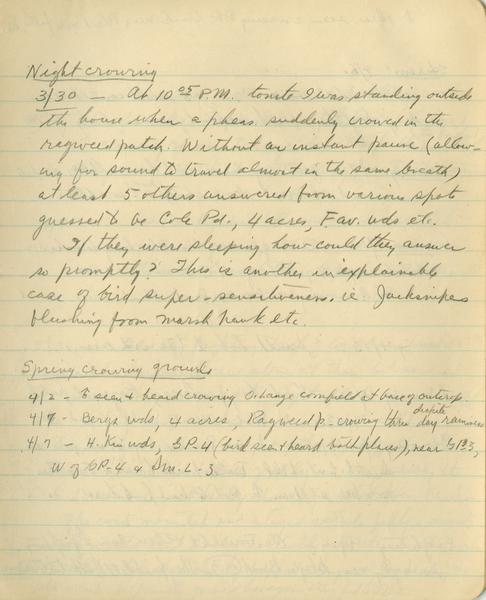 Night crowing
3/30 - At 10 05 P.M. tonite I was standing outside
the house when a pheas. suddenly crowed in the
ragweed patch. Without an instant pause (allow-
ing for sound to travel almost in the same breath)
at least 5 others answered from various spots
guessed to be Cole Pd., 4 acres, Fav. wds etc.
If they were sleeping how could they answer
so promptly? This is another inexplainable
case of bird super-sensitiveness. ie Jacksnipes
flushing from marsh hawk etc.
Spring crowing grounds
4/2 - seen & heard crowing cornfield at base of outcrop.
4/7 - Bergs wds, 4 acres, Ragweed p - crowing thru day despite rain
4/7 - H. Kin wds, GP-4 (bird seen & heard both places), near
W of GP-4 & L-3